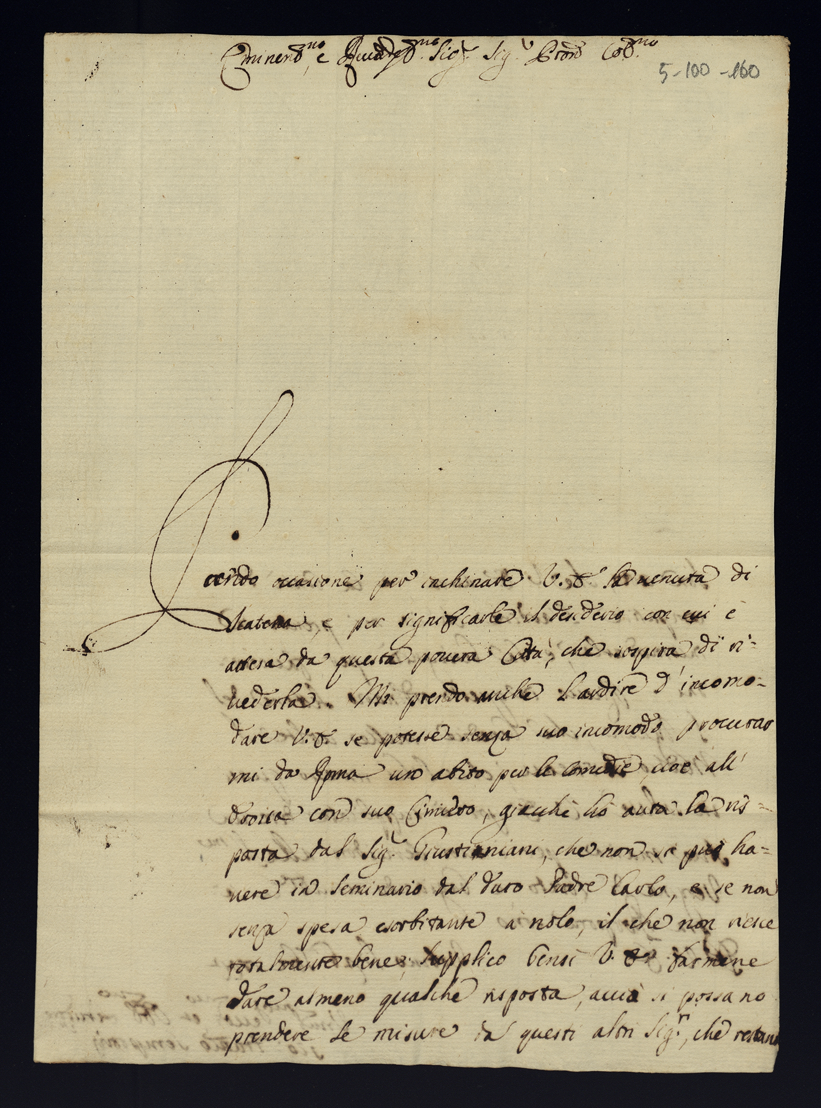 Eminen.mo e Riuer.mo Sig.r Sig.r Pron Col.mo
5-100-160
occasione per inchinare V. E. la uenuta di
e per significarle il desiderio con cui è
attesa da questa pouera Città, che sospira di ri-
uederla. Mi prendo anche l'ardire d'incomo-
dare V. E. se potesse senza suo incomodo procurar
mi da Roma un abito per le comedie, cioè all'
eroica con suo Cimiero, giacchè hò auta la ris-
posta dal Sig.r Giustiniani, che non si può ha-
uere in Seminario dal duro Padre Carlo, e se non
senza spesa esorbitante a nolo, il che non viene
totalmente bene; supplico bensì V. E. farmene
dare almeno qualche risposta, acciò si possano
prendere le misure da questi altri Sig.ri, che restano